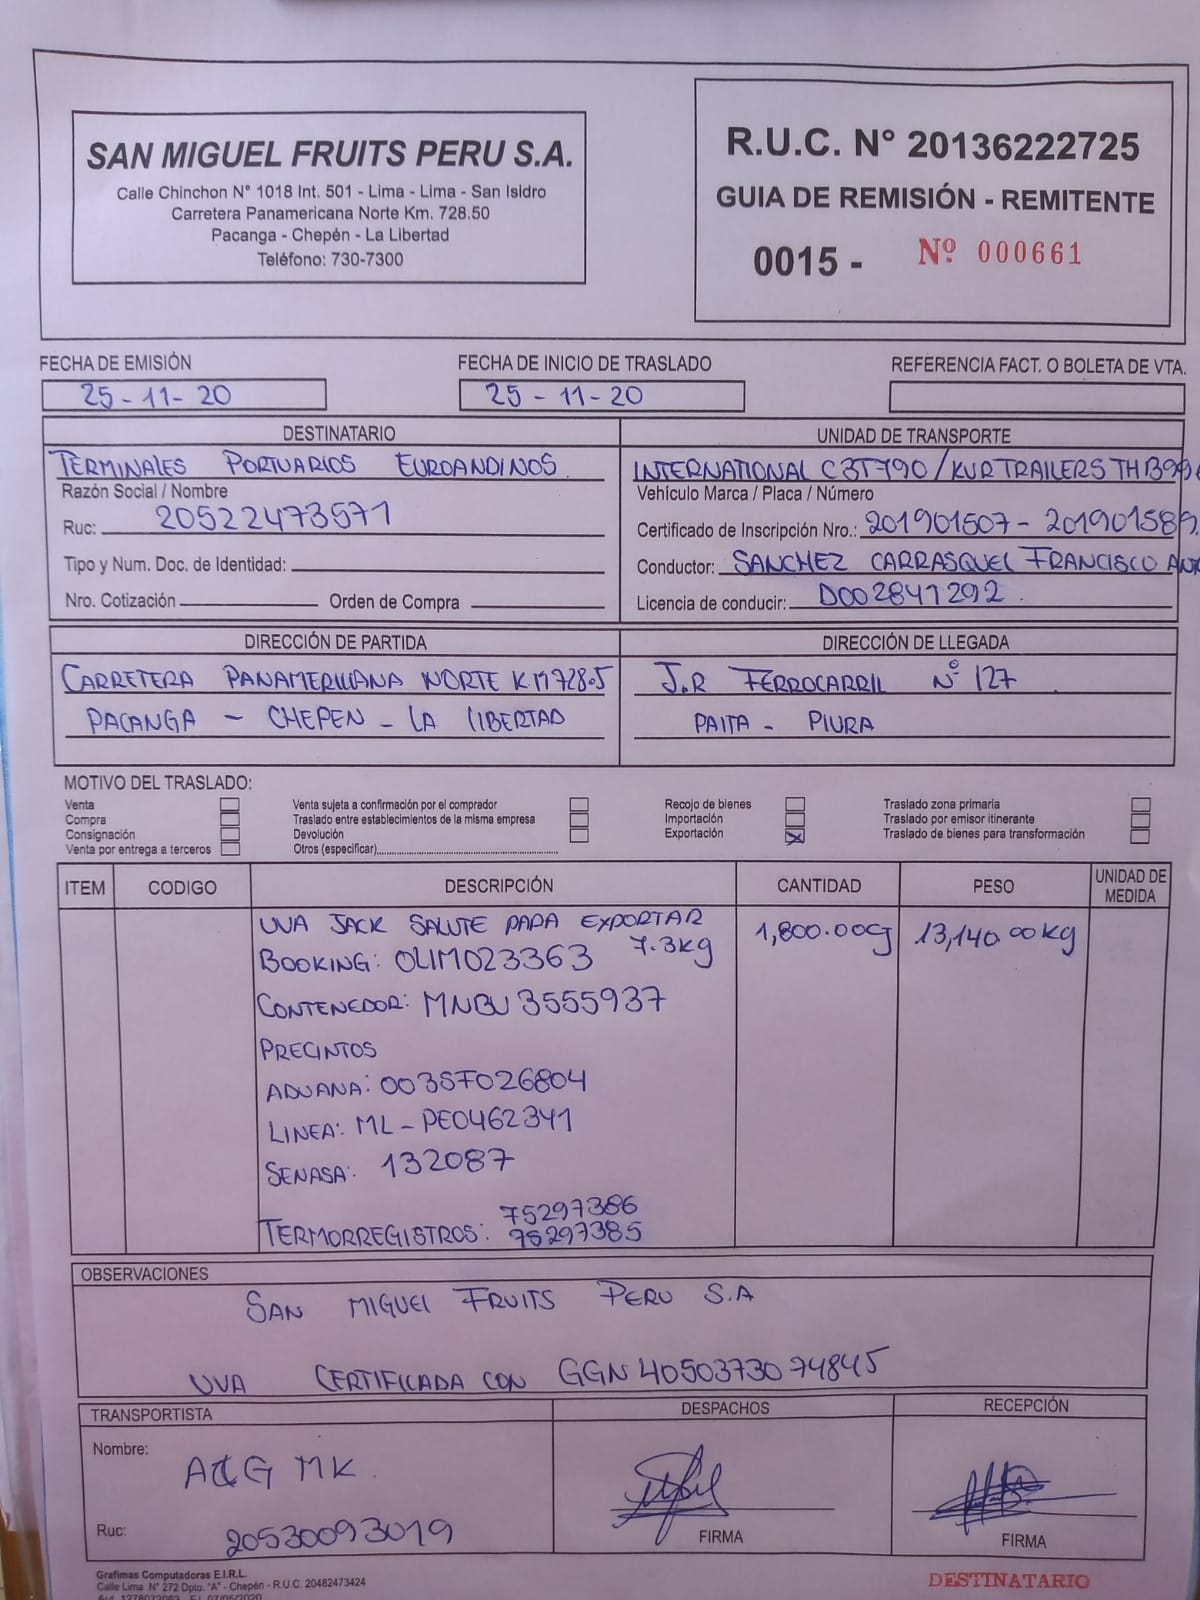 SAN MIGUEL FRUITS PERU S.A.
Calle Chinchon N° 1018 Int. 501 - Lima - Lima - San Isidro
Carretera Panamericana Norte Km. 728.50
Pacanga - Chepén - La Libertad
Teléfono: 730-7300
R.U.C. N° 20136222725
GUIA DE REMISIÓN - REMITENTE
0015 - Nº 000661
FECHA DE EMISIÓN
25-11-20
FECHA DE INICIO DE TRASLADO
25-11-20
REFERENCIA FACT. O BOLETA DE VTA.
DESTINATARIO
TERMINALES PORTUARIOS EUROANDINOS
Razón Social / Nombre
Ruc: 20522473571
Tipo y Num. Doc. de Identidad:
Nro. Cotización Orden de Compra
UNIDAD DE TRANSPORTE
INTERNATIONAL C3T790/KURTRAILERS
Vehículo Marca / Placa / Número
Certificado de Inscripción Nro.: 201901507-201901589
Conductor: SANCHEZ CARRASQUEL FRANCISCO
Licencia de conducir: D002841292.
DIRECCIÓN DE PARTIDA
CARRETERA PANAMERICANA NORTE KM728.5
PACANGA - CHEPEN - LA LIBERTAD
DIRECCIÓN DE LLEGADA
J.R FERROCARRIL N° 127
PAITA - PIURA
MOTIVO DEL TRASLADO:
Venta
Compra
Consignación
Venta por entrega a terceros
Venta sujeta a confirmación por el comprador
Traslado entre establecimientos de la misma empresa
Devolución
Otros (especificar)
Recojo de bienes
Importación
Exportación
Traslado zona primaria
Traslado por emisor itinerante
Traslado de bienes para transformación
ITEM CODIGO DESCRIPCIÓN CANTIDAD PESO UNIDAD DE MEDIDA
UVA JACK SALUTE PARA EXPORTAR 1,800.00CJ 13,140.00KG
BOOKING: OLIM023363 7.3KG
CONTENEDOR: MNBU 3555937
PRECINTOS
ADUANA: 003SF026804
LINEA: ML-PE0462341
SENASA: 132087
75297386
TERMORREGISTROS: 75297385
OBSERVACIONES
SAN MIGUEL FRUITS PERU S.A
UVA CERTIFICADA CON GGN 4050373074845
TRANSPORTISTA
Nombre: MK.
Ruc: 20530093019
DESPACHOS
FIRMA
RECEPCIÓN
FIRMA
Grafimas Computadoras E.I.R.L.
Calle Lima N° 272 Dpto. "A" - Chepén - R.U.C. 20482473424
DESTINATARIO